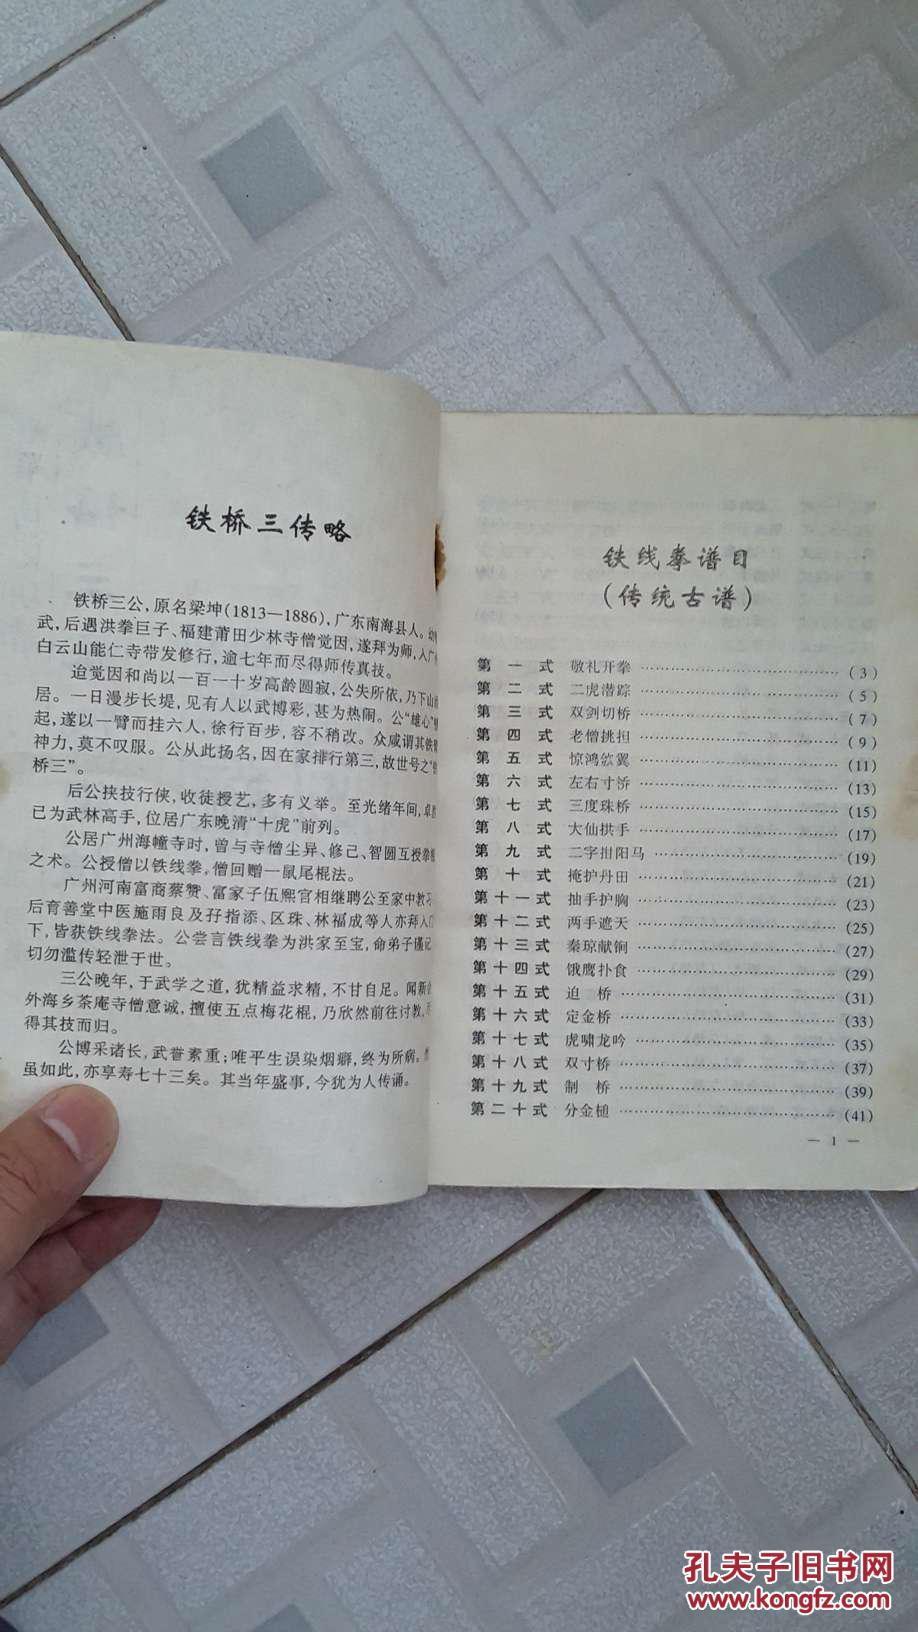 铁桥三传略
铁桥三公，原名梁坤(1813—1886)，广东南海县人。
武，后遇洪拳巨子、福建莆田少林寺僧觉因，遂拜为师，入广
白云山能仁寺带发修行，逾七年而尽得师传真技。
迨觉因和尚以一百一十岁高龄圆寂，公失所依，乃下山
居。一日漫步长堤，见有人以武博彩，甚为热闹。公“雄心”
起，遂以一臂而挂六人，徐行百步，容不稍改。众咸谓其铁
神力，莫不叹服。公从此扬名，因在家排行第三，故世号之“
桥三”。
后公挟技行侠，收徒授艺，多有义举。至光绪年间，卓
已为武林高手，位居广东晚清“十虎”前列。
公居广州海幢寺时，曾与寺僧尘异、修己、智圆互授拳
之术。公授僧以铁线拳，僧回赠一鼠尾棍法。
广州河南富商蔡赞、富家子伍熙官相继聘公至家中教
后育善堂中医施雨良及孖指添、区珠、林福成等人亦拜入
下，皆获铁线拳法。公尝言铁线拳为洪家至宝，命弟子谨记
切勿滥传轻泄于世。
三公晚年，于武学之道，犹精益求精，不甘自足。闻新
外海乡茶庵寺僧意诚，擅使五点梅花棍，乃欣然前往讨教，
得其技而归。
公博采诸长，武誉素重；唯平生误染烟癖，终为所病。
虽如此，亦享寿七十三矣。其当年盛事，今犹为人传诵。
铁线拳谱目
(传统古谱)
第一式 敬礼开拳 ……………………………… (3)
第二式 二虎潜踪 ……………………………… (5)
第三式 双剑切桥 ……………………………… (7)
第四式 老僧挑担 ……………………………… (9)
第五式 惊鸿敛翼 ……………………………… (11)
第六式 左右寸济 ……………………………… (13)
第七式 三度珠桥 ……………………………… (15)
第八式 大仙拱手 ……………………………… (17)
第九式 二字拑阳马 ……………………………… (19)
第十式 掩护丹田 ……………………………… (21)
第十一式 抽手护胸 ……………………………… (23)
第十二式 两手遮天 ……………………………… (25)
第十三式 秦琼献锏 ……………………………… (27)
第十四式 饿鹰扑食 ……………………………… (29)
第十五式 迫桥 ……………………………… (31)
第十六式 定金桥 ……………………………… (33)
第十七式 虎啸龙吟 ……………………………… (35)
第十八式 双寸桥 ……………………………… (37)
第十九式 制桥 ……………………………… (39)
第二十式 分金槌 ……………………………… (41)
— 1 —
孔夫子旧书网
www.kongfz.com